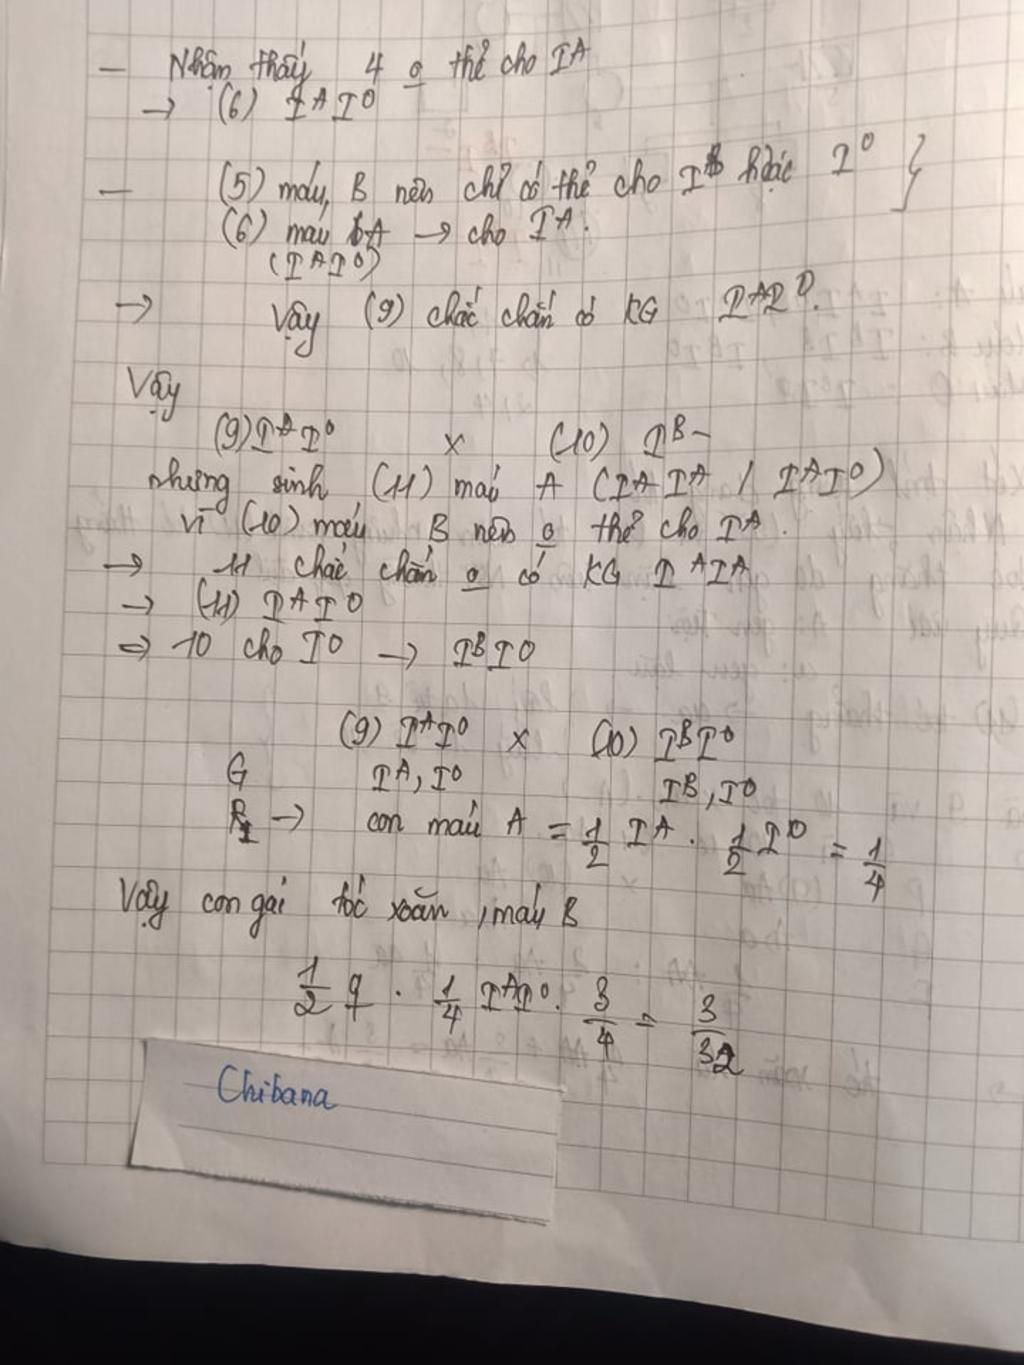 — Nhận thấy 4 o thể cho IA
→ (6) IAIO
— (5) máu B nên chỉ có thể cho IB hoặc IO }
(6) máu A → cho IA.
(IAIO)
→ Vậy (9) chắc chắn có KG IAIO.
Vậy
(9) IAIO x (10) IB–
nhưng sinh (11) máu A (IAIA / IAIO)
vì (10) máu B nên o thể cho IA.
→ 11 chắc chắn o có KG IAIA
→ (11) IAIO
=> 10 cho IO → IBIO
(9) IAIO x (10) IBIO
G IA, IO IB, IO
→ con máu A = 1/2 IA . 1/2 IO = 1/4
Vậy con gái tóc xoăn, máu B
1/2 ♀ . 1/4 IAIO . 3/4 = 3/32
Chibana